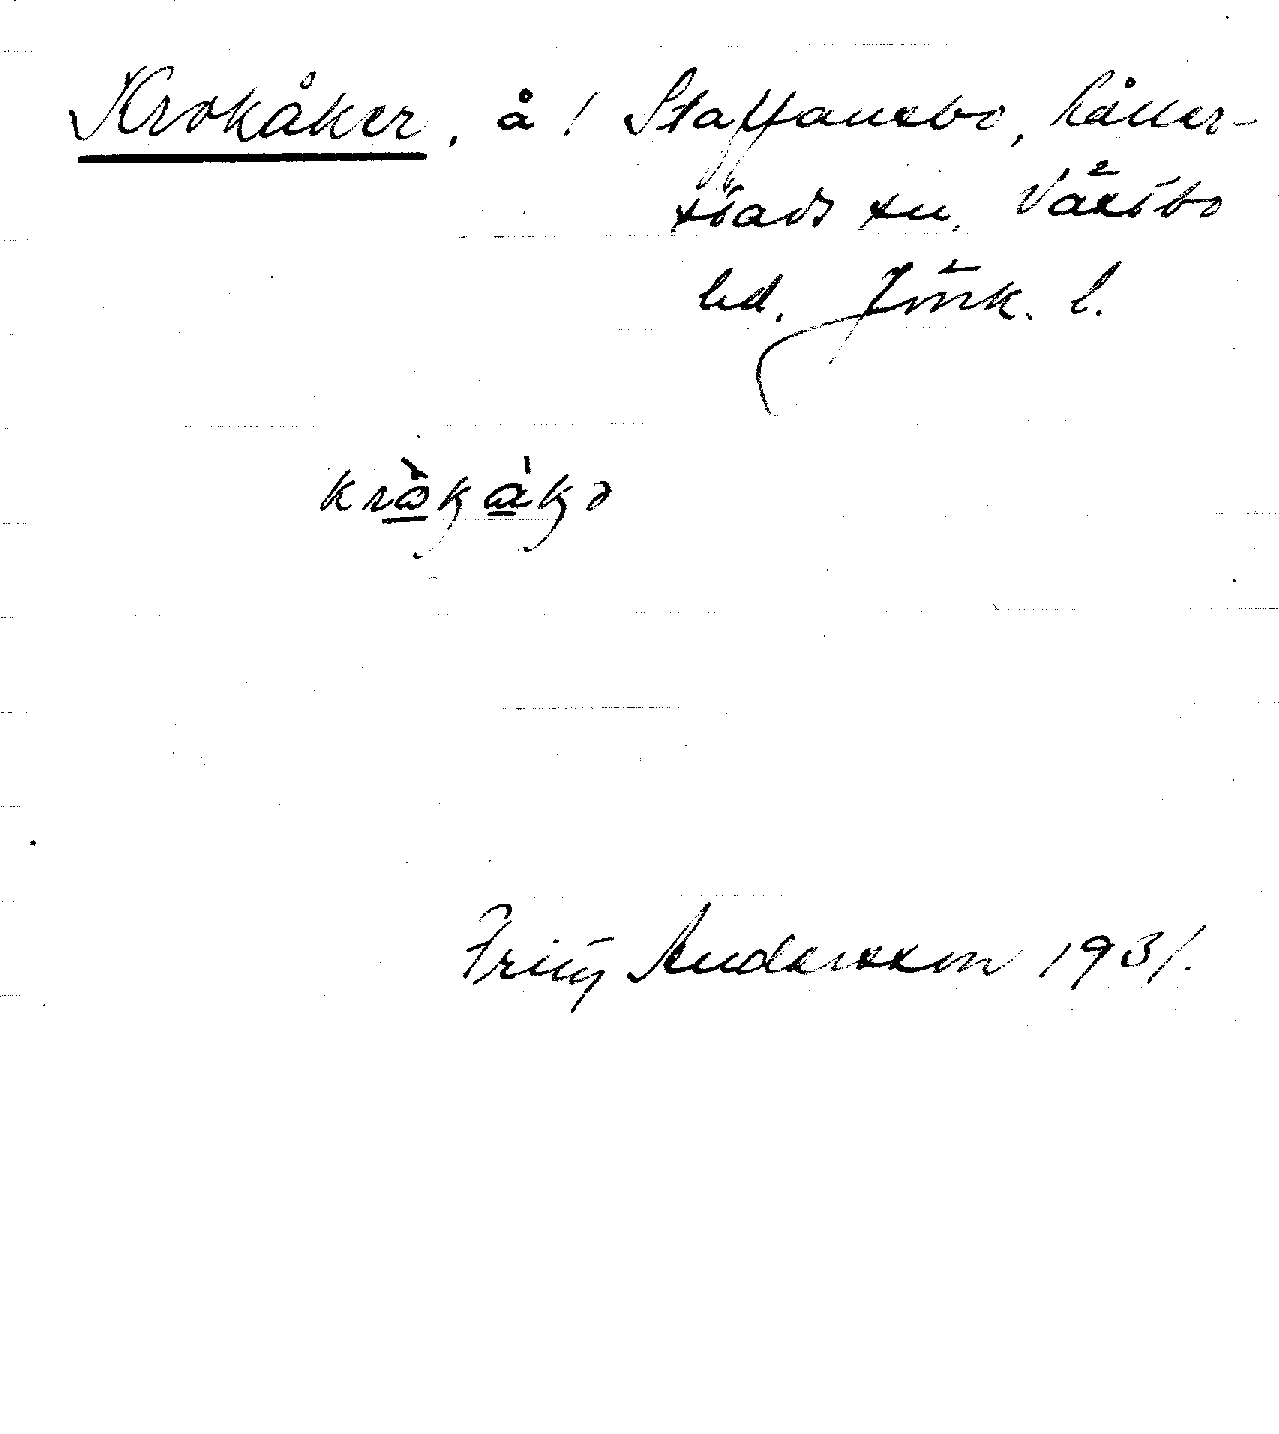 Krokåker, å i Staffansbo, Kåller-
stads sn. Västbo
hd. Jönk. l.
Fritz Andersson 1931.